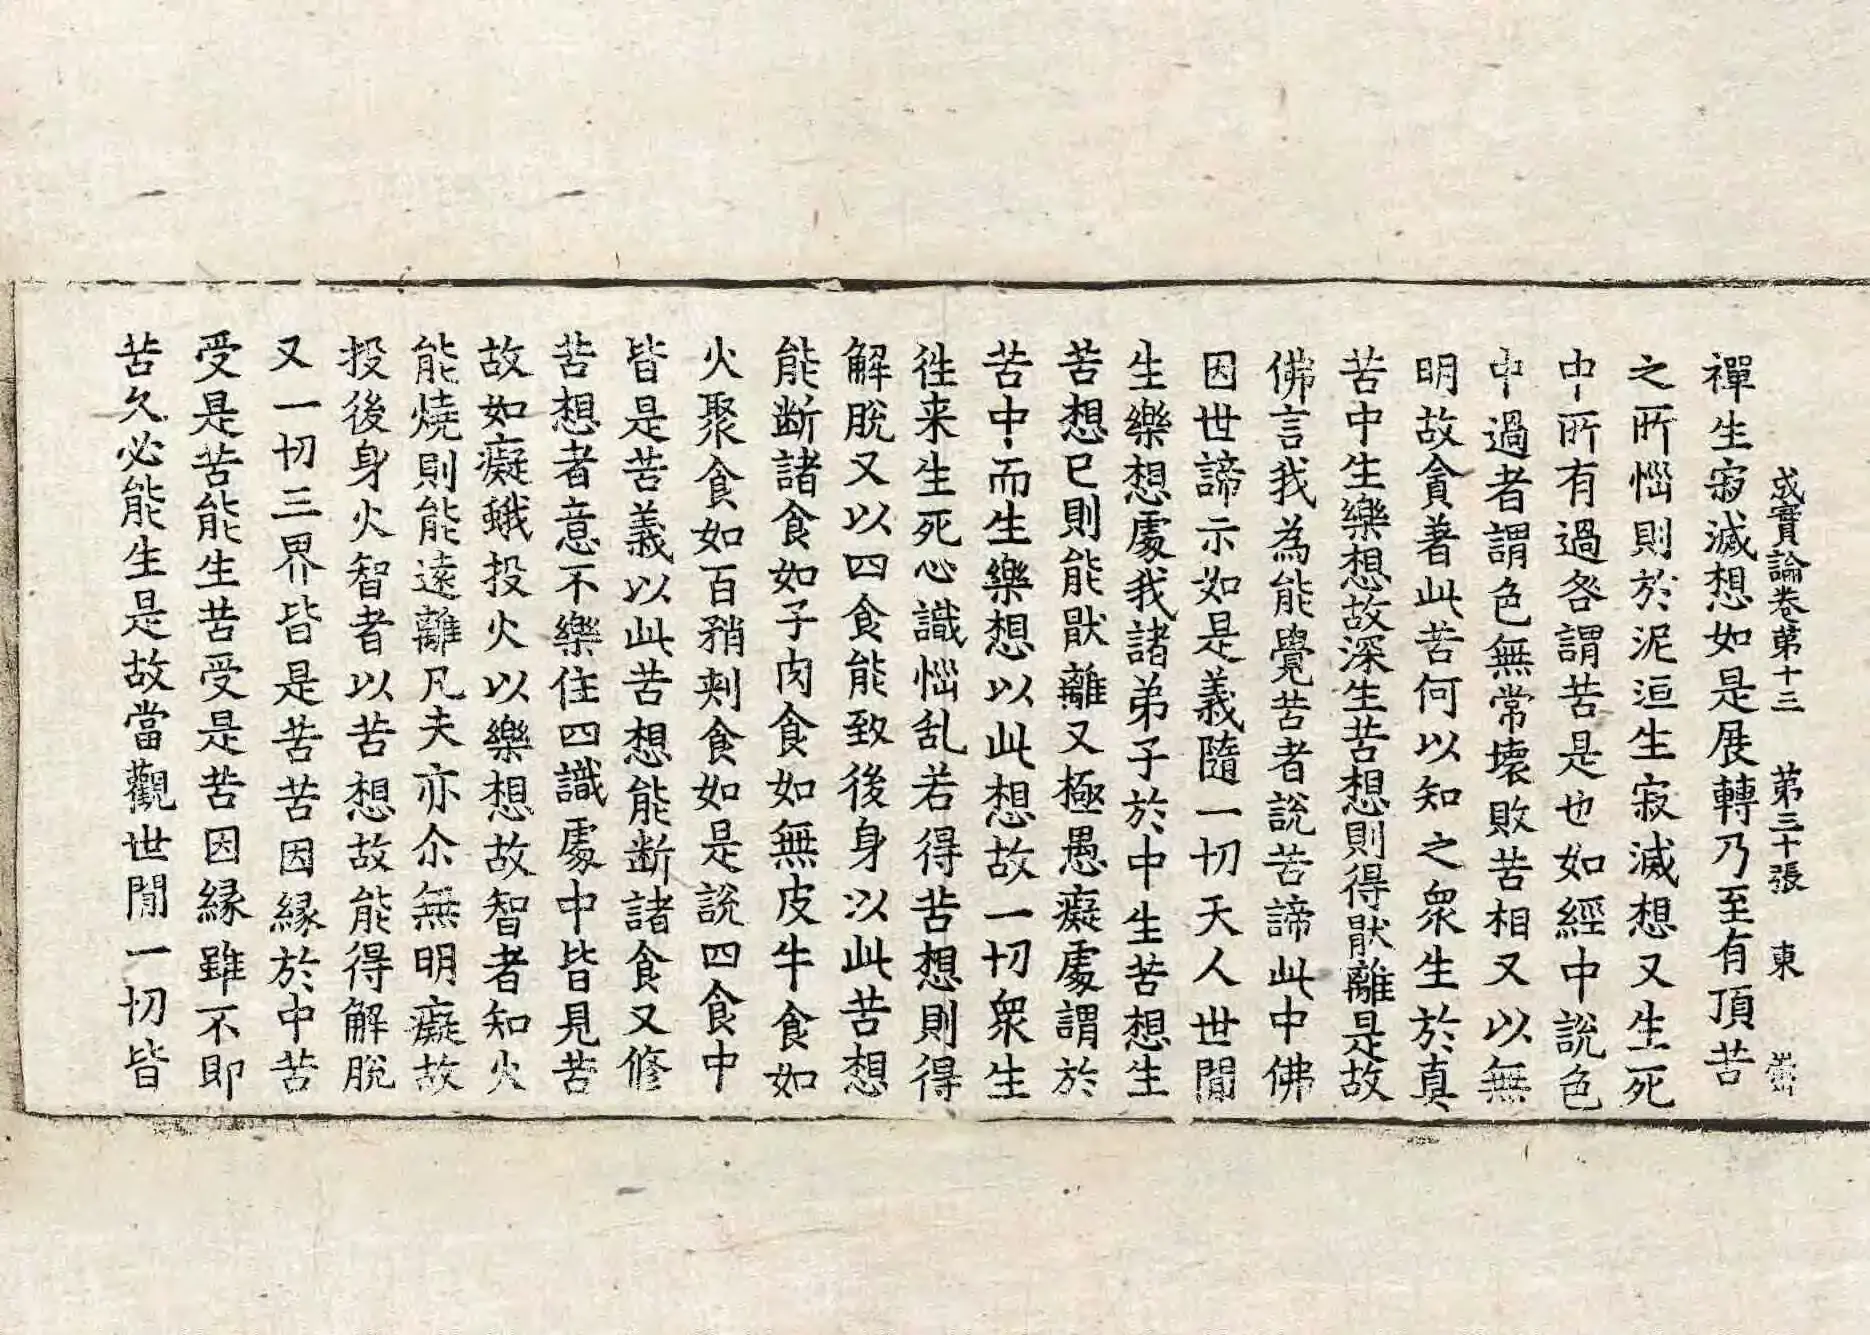 成實論卷第十三 第三十張 東
禪生寂滅想如是展轉乃至有頂苦
之所惱則於泥洹生寂滅想又生死
中所有過咎謂苦是也如經中說色
中過者謂色無常壞敗苦相又以無
明故貪著此苦何以知之衆生於真
苦中生樂想故深生苦想則得猒離是故
佛言我為能覺苦者說苦諦此中佛
因世諦示如是義隨一切天人世間
生樂想處我諸弟子於中生苦想生
苦想已則能猒離又極愚癡處謂於
苦中而生樂想以此想故一切衆生
往来生死心識惱乱若得苦想則得
解脫又以四食能致後身以此苦想
能断諸食如子肉食如無皮牛食如
火聚食如百矟刾食如是說四食中
皆是苦義以此苦想能断諸食又修
苦想者意不樂住四識處中皆見苦
故如癡蛾投火以樂想故智者知火
能燒則能遠離凡夫亦尒無明癡故
投後身火智者以苦想故能得解脫
又一切三界皆是苦苦因縁於中苦
受是苦能生苦受是苦因縁雖不即
苦久必能生是故當觀世間一切皆